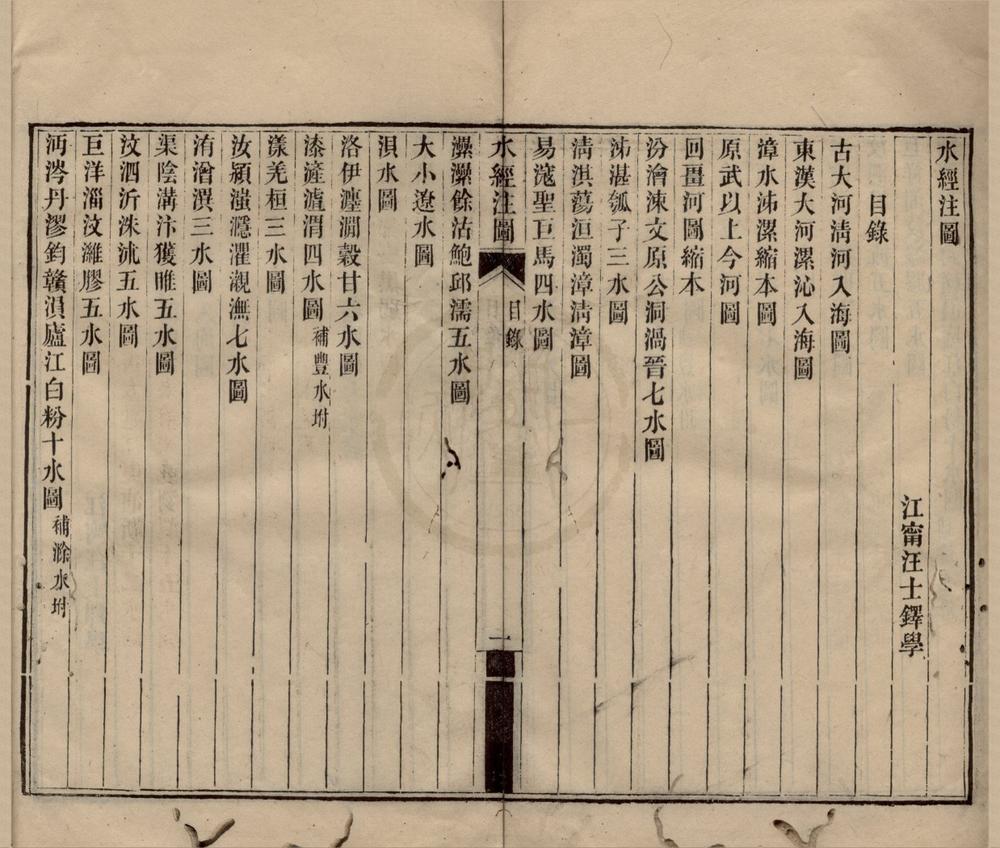 水經注圖
江甯汪士鐸學
目錄
古大河淸河入海圖
東漢大河漯沁入海圖
漳水泲漯縮本圖
原武以上今河圖
回疆河圖縮本
汾澮涑文原公洞渦晉七水圖
泲湛瓠子三水圖
淸淇蕩洹濁漳淸漳圖
易滱聖巨馬四水圖
水經注圖
目錄
一
灅灅餘沽鮑邱濡五水圖
大小遼水圖
浿水圖
洛伊瀍澗穀甘六水圖
漆滻瀘渭四水圖補豐水坿
漾羌桓三水圖
汝潁滍㶏灈瀙潕七水圖
洧潧潩三水圖
渠陰溝汴獲睢五水圖
汶泗沂洙沭五水圖
巨洋淄汶濰膠五水圖
沔涔丹漻鈞贛溳廬江白粉十水圖補滁水坿